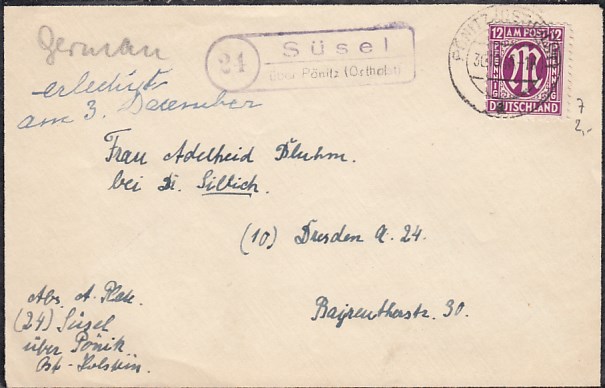 German
erledigt
am 3. Dezember
24
Süsel
über Pönitz (Ostholst)
PÖNITZ
12 AM POST 12
PFENNIG
PFENNIG
M
DEUTSCHLAND
7
2,-
Frau Adelheid Bluhm.
bei Dr. Sillich.
(10) Dresden A. 24.
Bayreutherstr. 30.
Abs. A.
(24) Süsel
über Pönitz
Ost-Holstein.